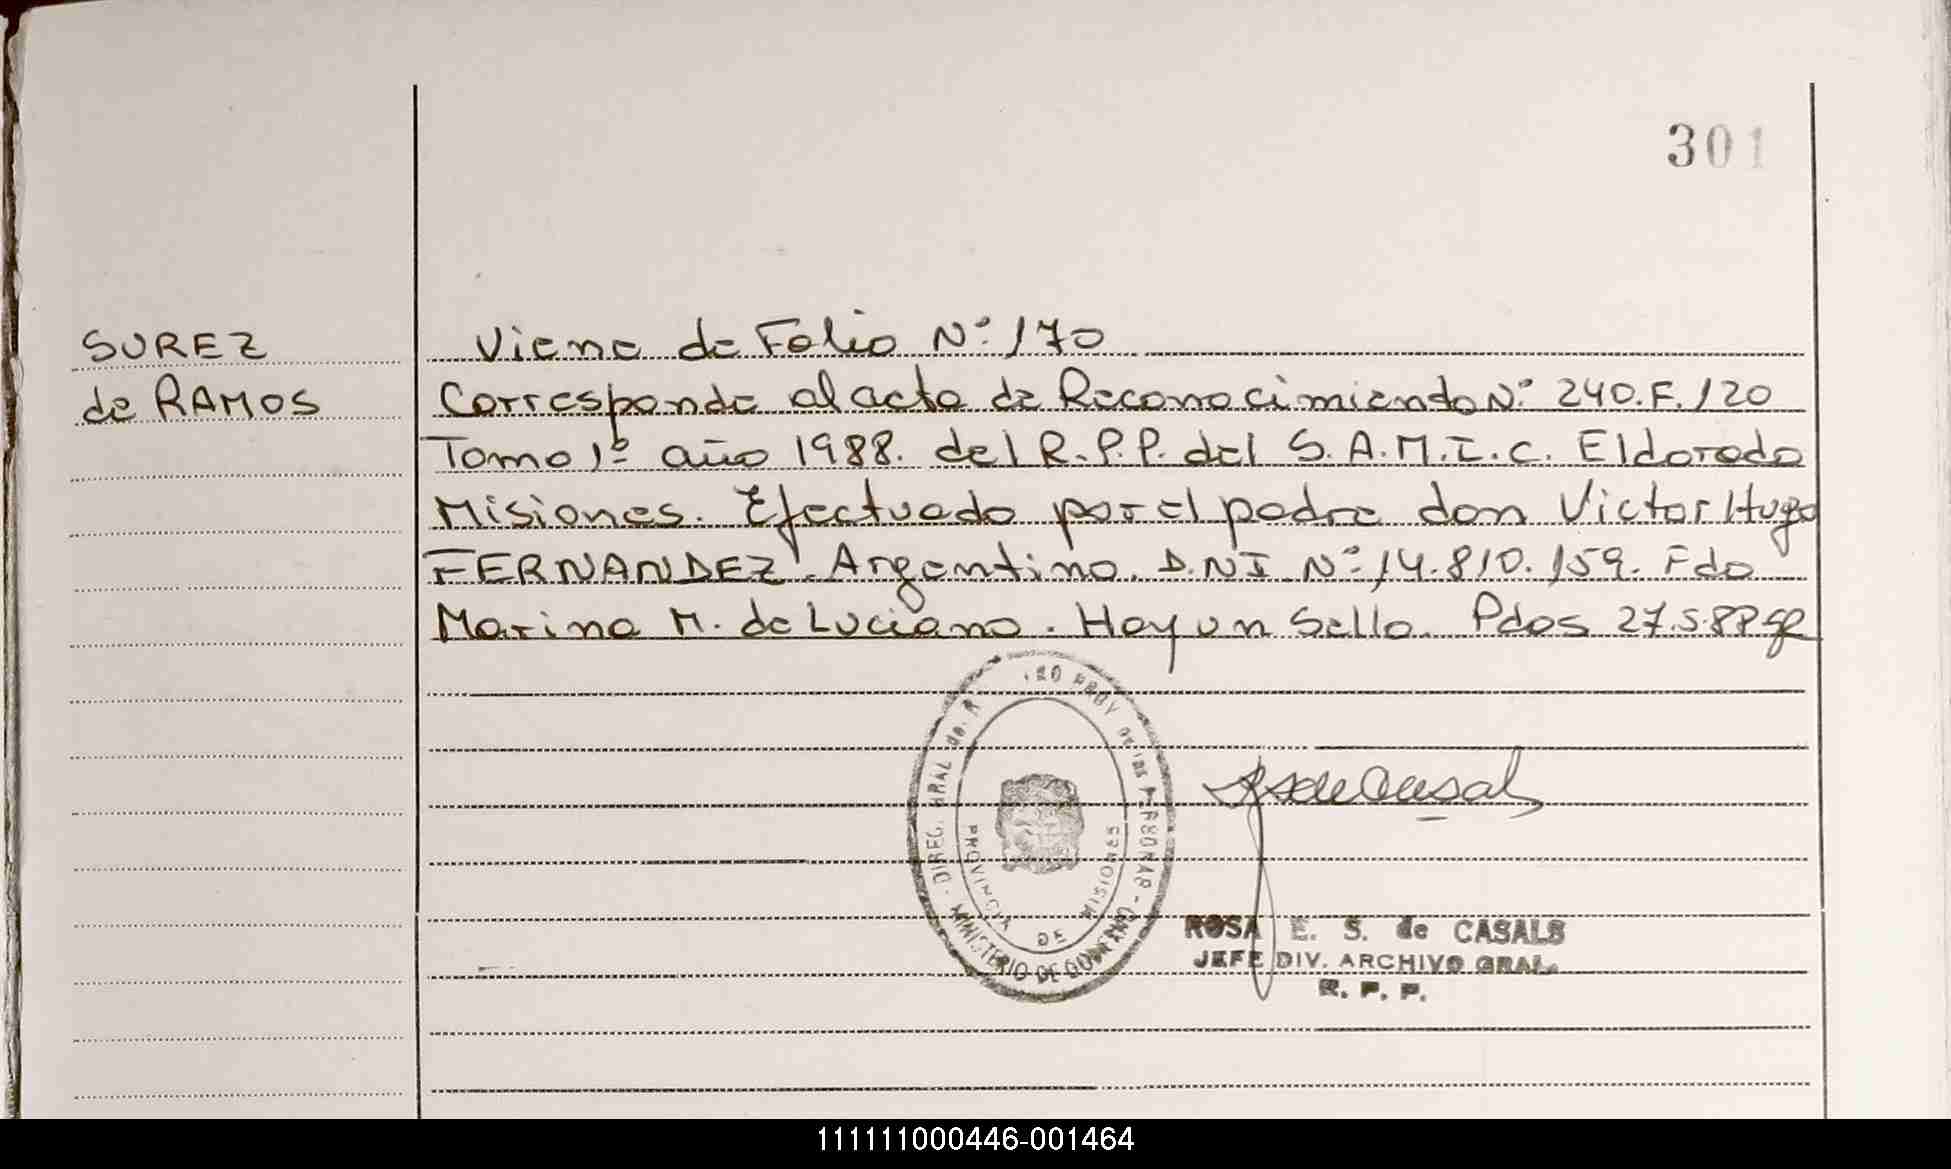 301
SUREZ
de RAMOS
Viene de Folio Nº 170
Corresponde al acta de Reconocimiento Nº 240.F.120
Tomo 1º año 1988. del R.P.P. del S.A.M.I.C. Eldorado
Misiones. Efectuado por el padre don Victor Hugo
FERNANDEZ. Argentino. D.NI Nº 14.810.159. Fdo
Marina M. de Luciano. Hay un Sello. Pdas 27.5.88
DIREC. GRAL de. PROV DE LAS PERSONAS - MINISTERIO DE GOBIERNO
PROVINCIA DE MISIONES
ROSA E. S. de CASALS
JEFE DIV. ARCHIVO GRAL.
R. P. P.
111111000446-001464